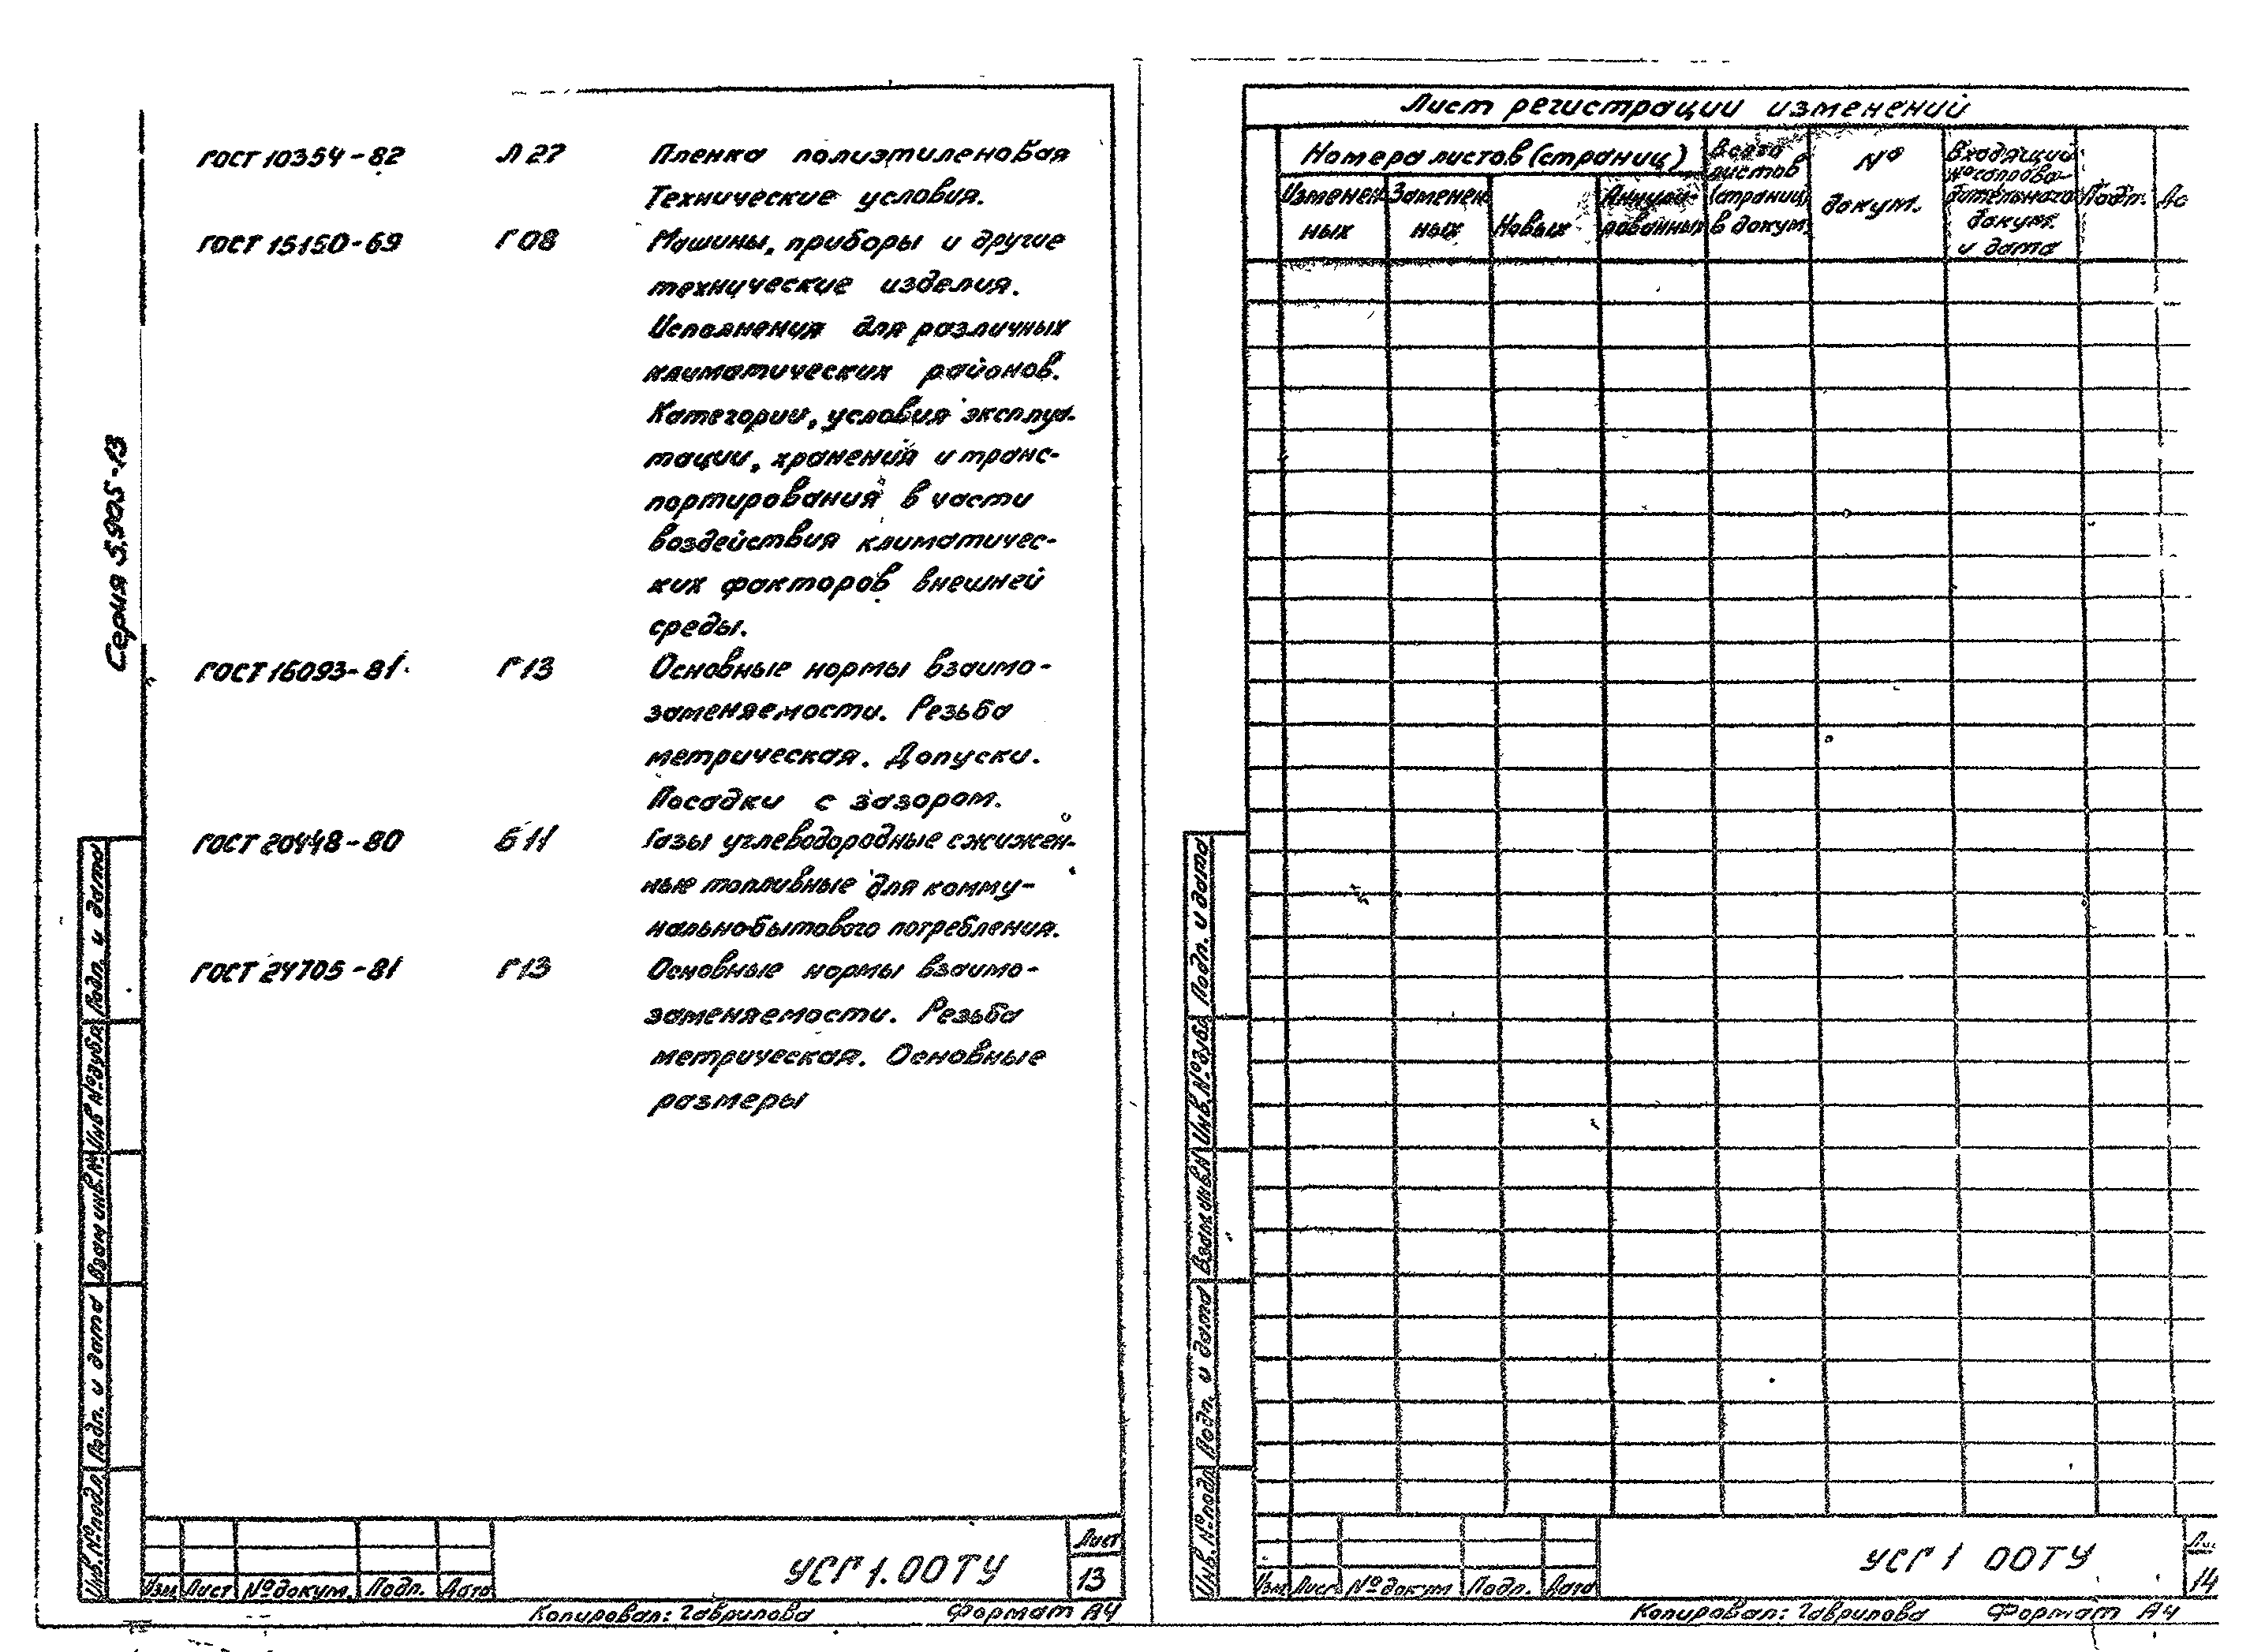 ГОСТ 10354-82 Л 27 Пленка полиэтиленовая
Технические условия.
ГОСТ 15150-69 Г 08 Машины, приборы и другие
технические изделия.
Исполнения для различных
климатических районов.
Категории, условия эксплуа-
тации, хранения и транс-
портирования в части
воздействия климатичес-
ких факторов внешней
среды.
ГОСТ 16093-81 Г 13 Основные нормы взаимо-
заменяемости. Резьба
метрическая. Допуски.
Посадки с зазором.
ГОСТ 20448-80 Б 11 Газы углеводородные сжижен-
ные топливные для комму-
нально-бытового потребления.
ГОСТ 24705-81 Г 13 Основные нормы взаимо-
заменяемости. Резьба
метрическая. Основные
размеры
Серия 5.905-13
Подп. и дата
Инв № дубл.
Взам инв. №
Подп. и дата
Инв. № подл.
Изм Лист № докум. Подп. Дата
УСГ 1.00ТУ
Лист
13
Копировал: Гаврилова Формат А4
Лист регистрации изменений
Номера листов (страниц)
Изменен-
ных
Заменен
ных
Новых
Аннули-
рованных
Всего
листов
(страниц)
в докум.
№
докум.
Входящий
№ сопрово-
дительного
докум.
и дата
Подп.
Да
Подп. и дата
Инв. № дубл
Взам инв.N
Подп. и дата
Инв. № подл
Изм Лист № докум Подп. Дата
УСГ 1 00ТУ
Лис
14
Копировал: Гаврилова Формат А4